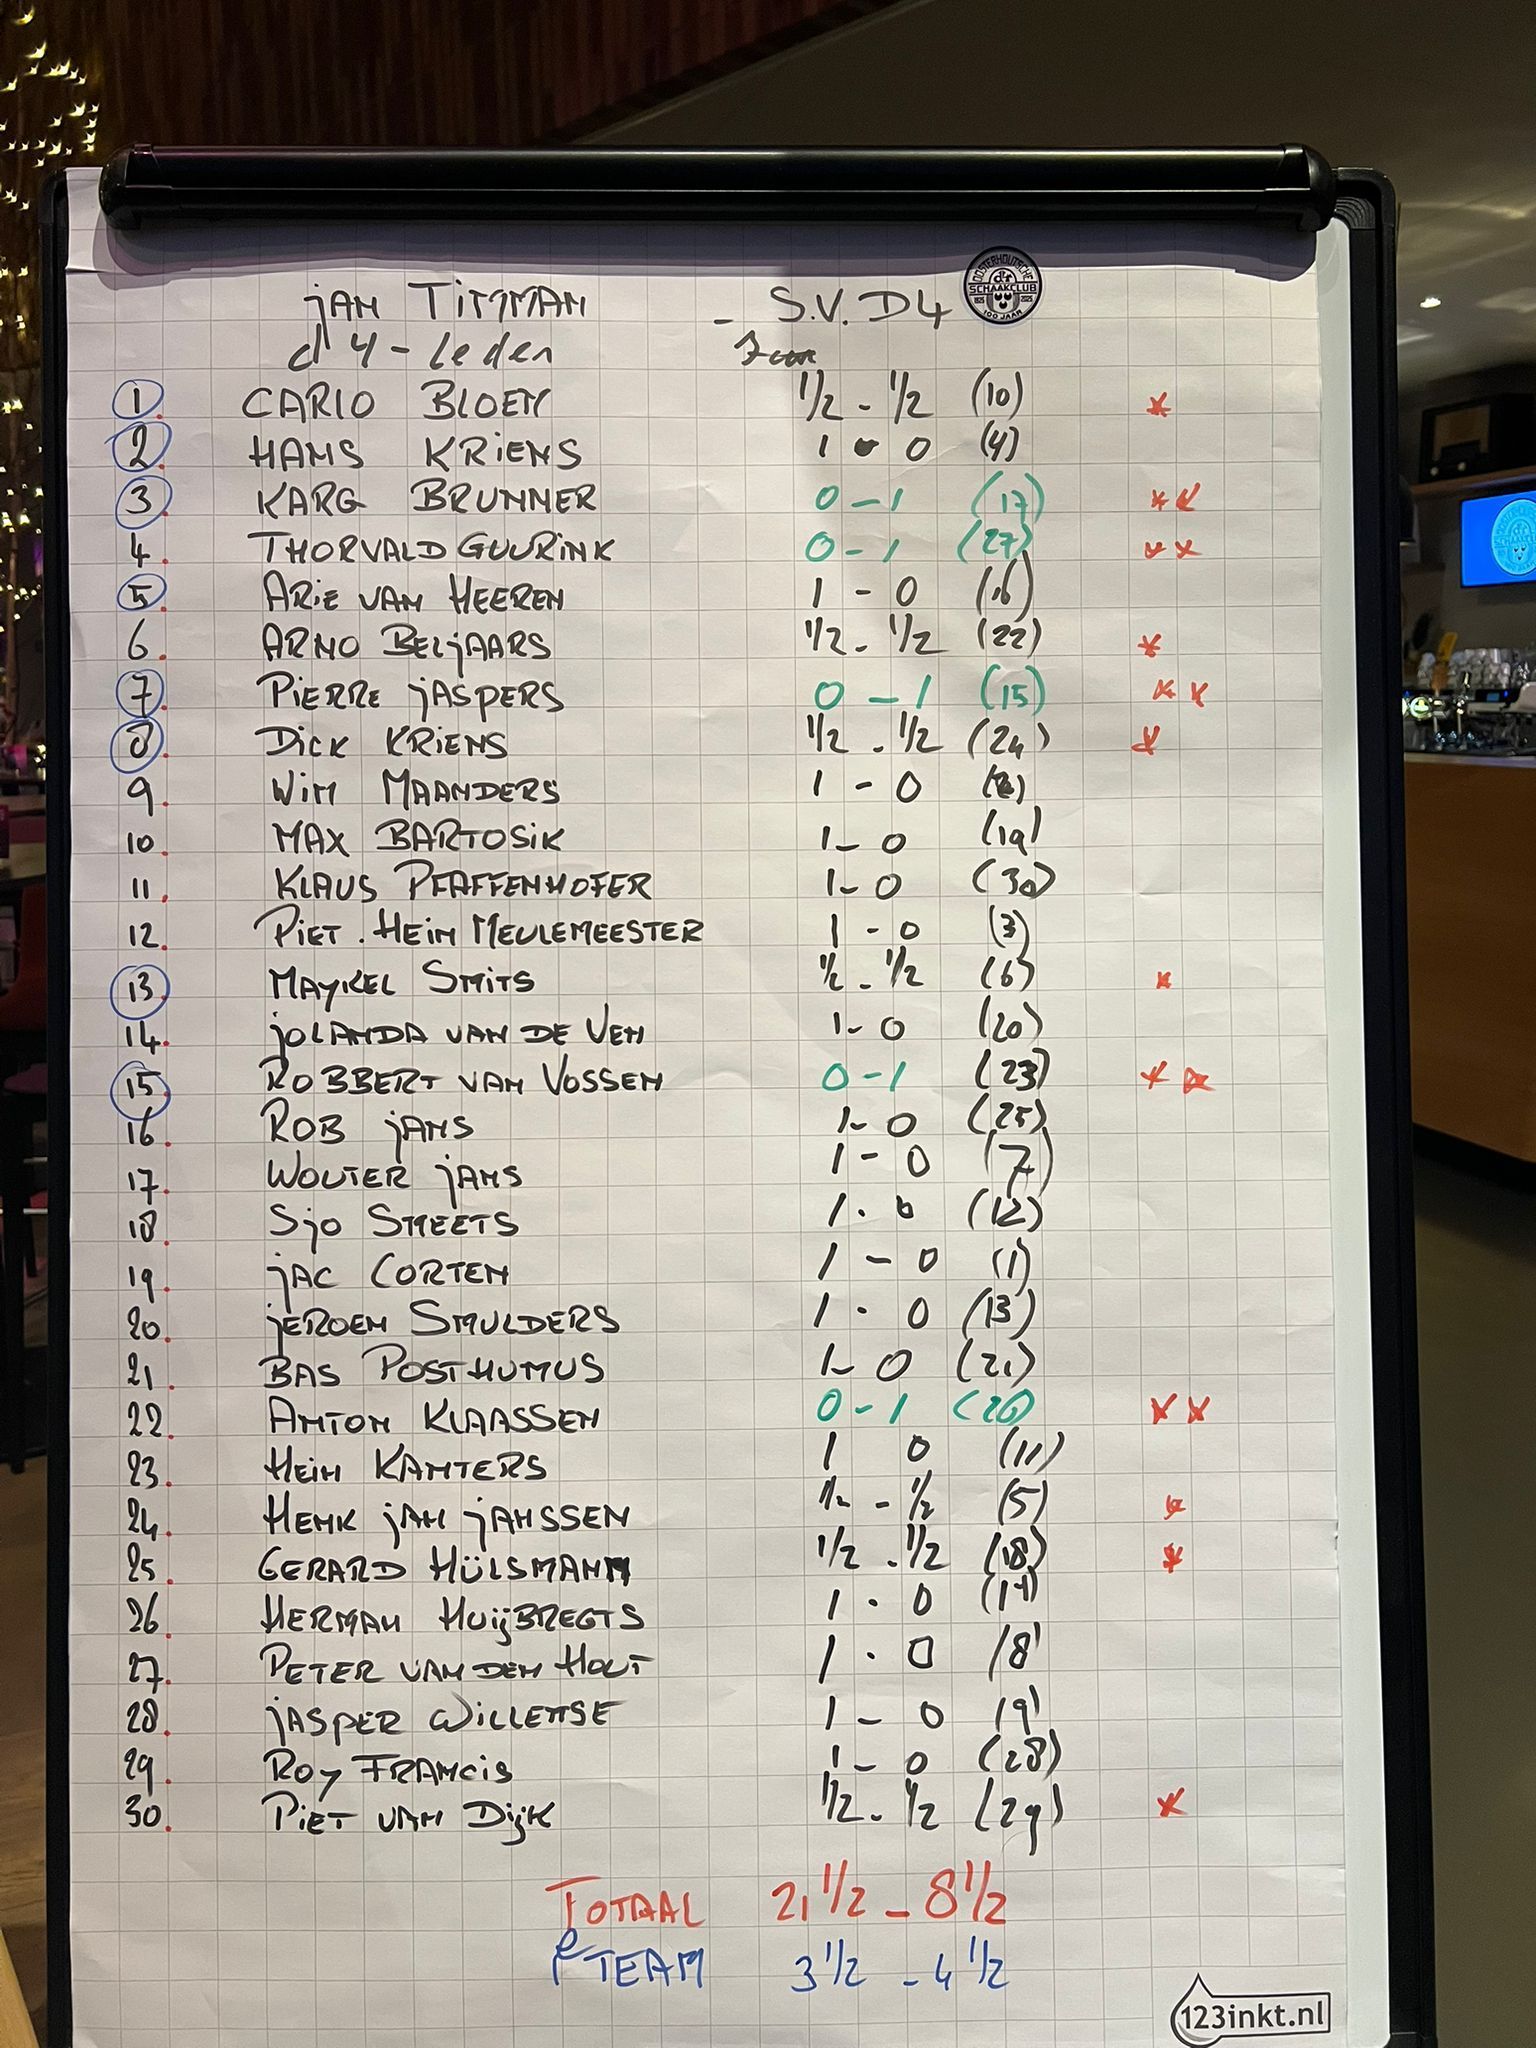 JAN TIMMAN - S.V. D4
d4-leden
OOSTERHOUTSCHE SCHAAKCLUB 1925 2025 100 JAAR
1. CARLO BLOEM 1/2 - 1/2 (10) *
2. HANS KRIENS 1 - 0 (4)
3. KARG BRUNNER 0 - 1 (17) **
4. THORVALD GUURINK 0 - 1 (27) **
5. ARIE VAN HEEREN 1 - 0 (16)
6. ARNO BELJAARS 1/2 - 1/2 (22) *
7. PIERRE JASPERS 0 - 1 (15) **
8. DICK KRIENS 1/2 - 1/2 (24) *
9. WIM MAANDERS 1 - 0
10. MAX BARTOSIK 1 - 0 (19)
11. KLAUS PFAFFENHOFER 1 - 0 (30)
12. PIET-HEIN MEULEMEESTER 1 - 0 (3)
13. MAYKEL SMITS 1/2 - 1/2 (6) *
14. JOLANDA VAN DE VEN 1 - 0 (20)
15. ROBBERT VAN VOSSEN 0 - 1 (23) **
16. ROB JANS 1 - 0 (25)
17. WOUTER JANS 1 - 0 (7)
18. SJO SMEETS 1 - 0 (12)
19. JAC CORTEN 1 - 0 (1)
20. JEROEN SMULDERS 1 - 0 (13)
21. BAS POSTHUMUS 1 - 0 (21)
22. ANTON KLAASSEN 0 - 1 (26) **
23. HEIN KANTERS 1 0 (11)
24. HENK JAN JANSSEN 1/2 - 1/2 (5) *
25. GERARD HÜLSMANN 1/2 - 1/2 (18) *
26. HERMAN HUIJBREGTS 1 - 0 (14)
27. PETER VAN DEN HOUT 1 - 0 (8)
28. JASPER WILLEMSE 1 - 0 (9)
29. ROY FRANCIS 1 - 0 (28)
30. PIET VAN DIJK 1/2 - 1/2 (29) *
TOTAAL 21 1/2 - 8 1/2
TEAM 3 1/2 - 4 1/2
123inkt.nl